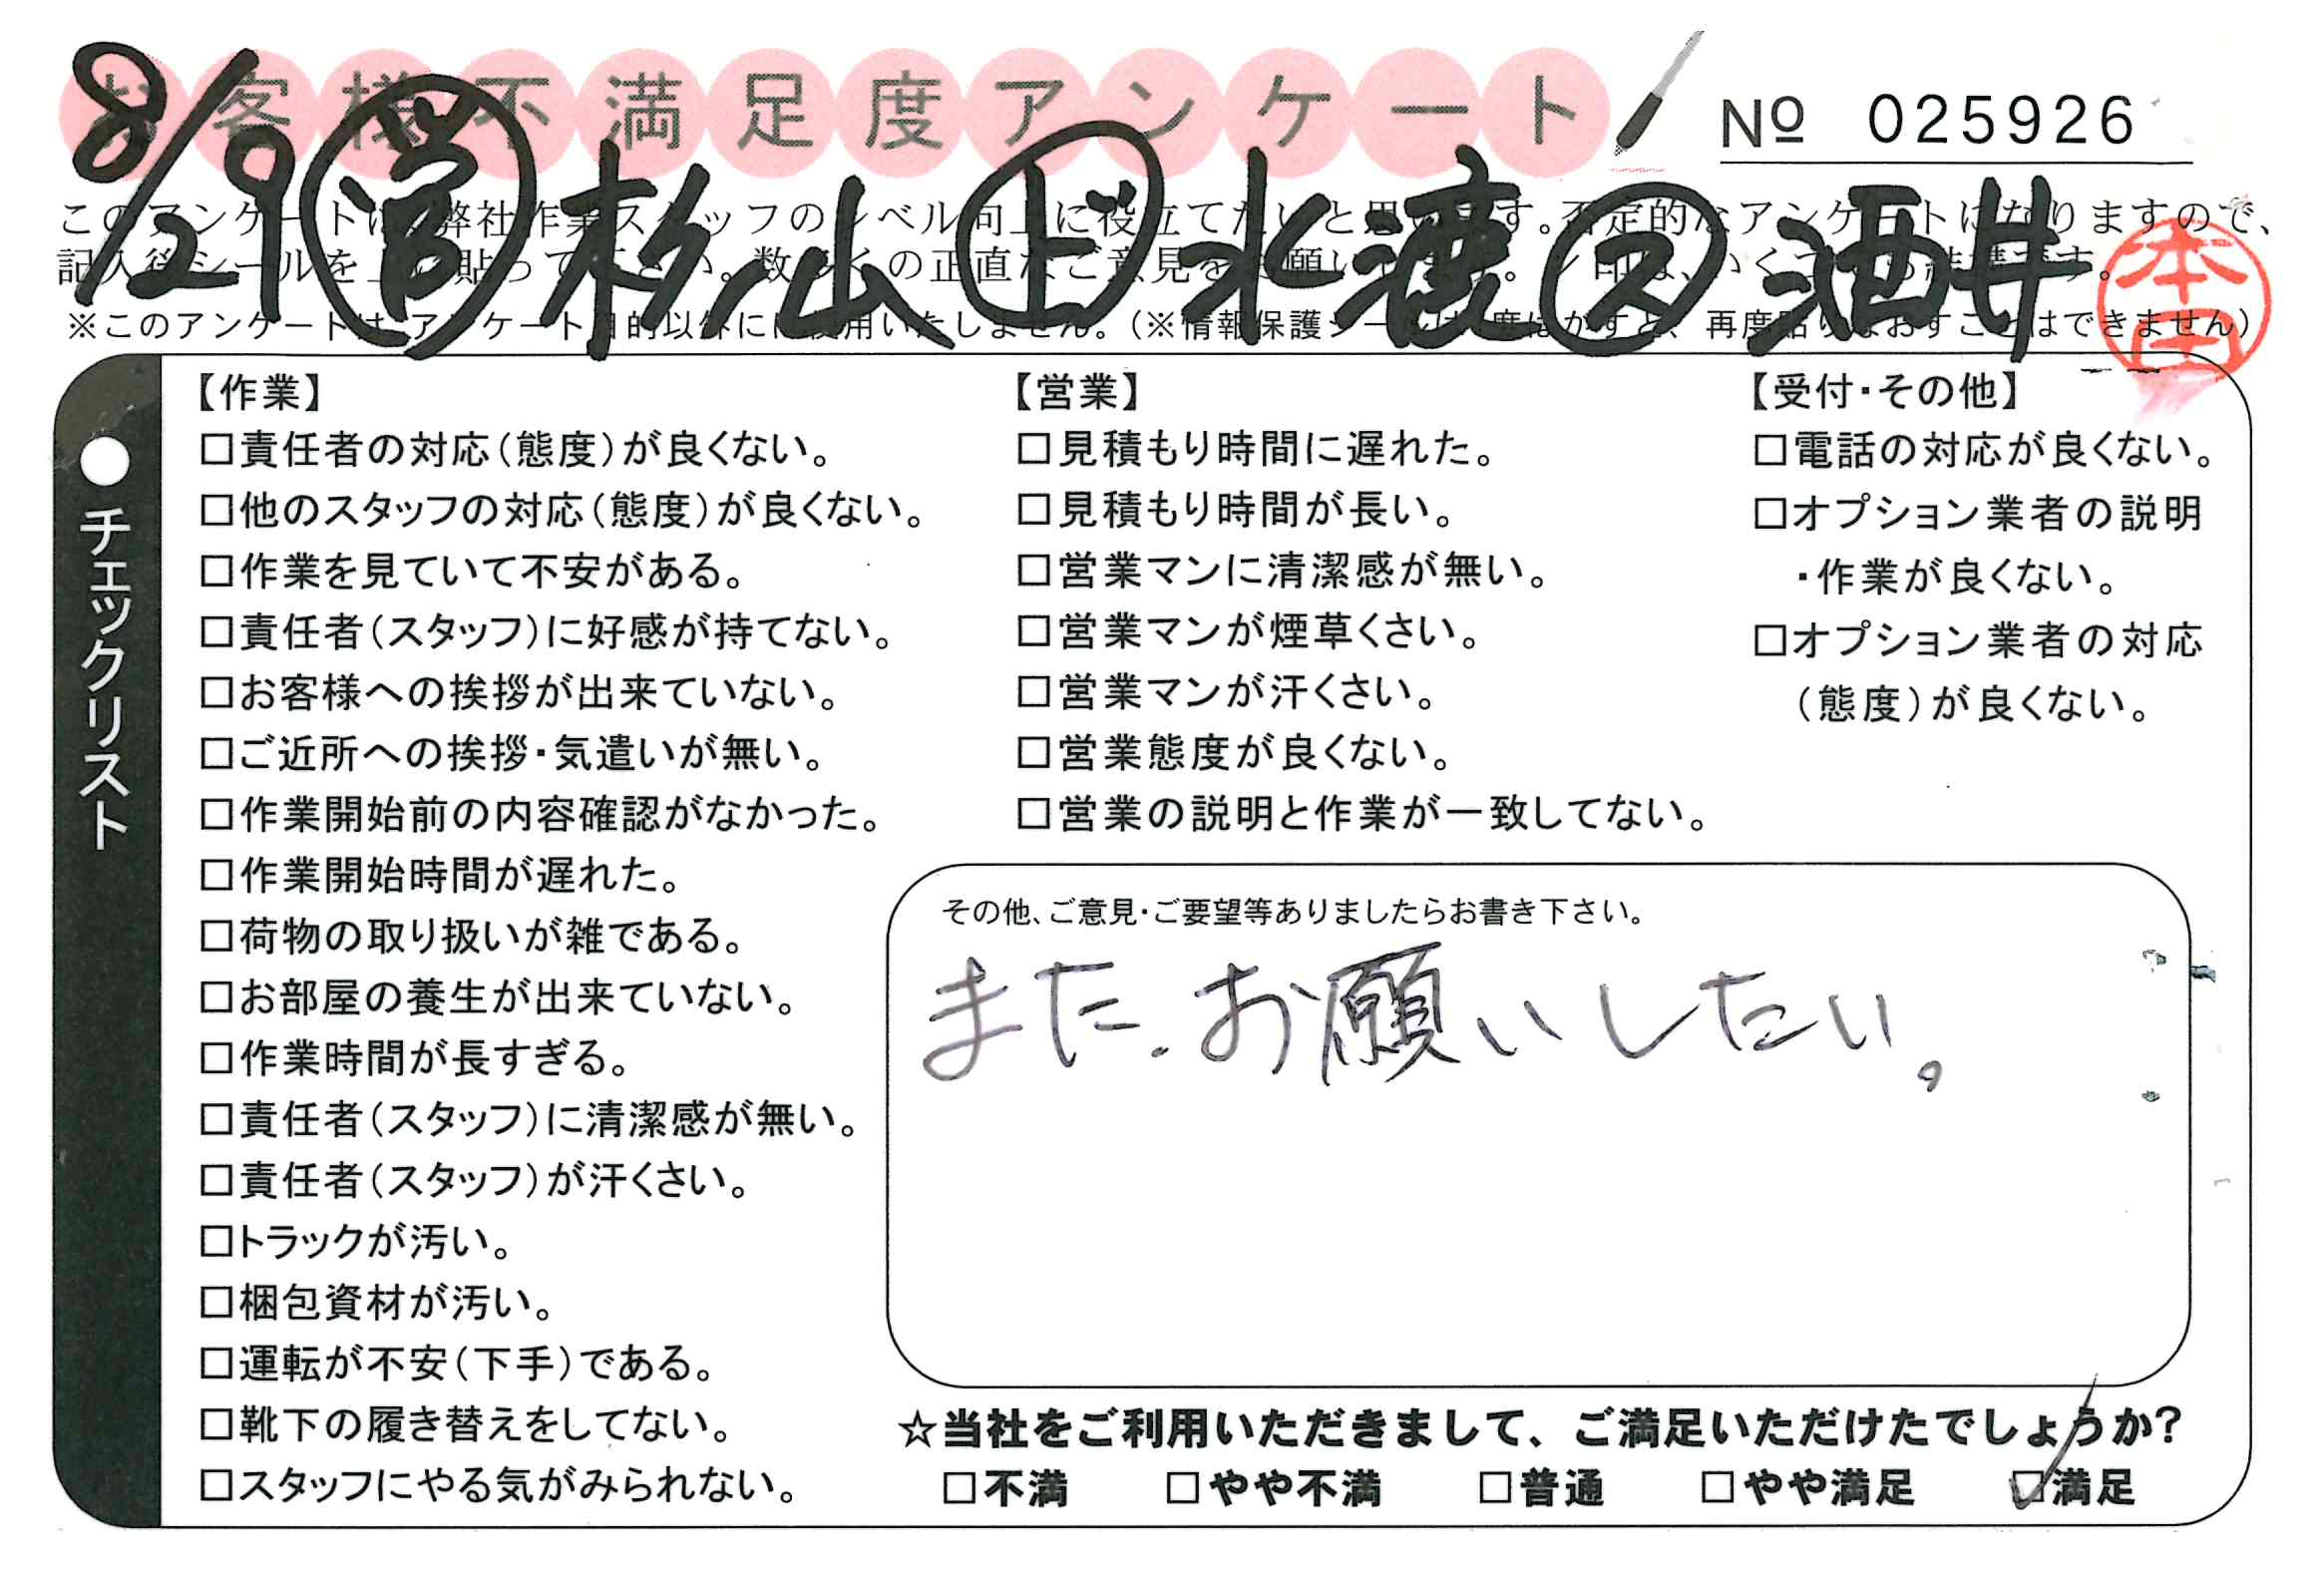 お客様不満足度アンケート
№ 025926
8/29 営 杉山 上 水漉 ス 酒井
本田
このアンケートは、弊社作業スタッフのレベル向上に役立てたいと思います。否定的なアンケートになりますので、
記入後シールを上に貼って下さい。数多くの正直なご意見をお願いします。レ印は、いくつでも結構です。
※このアンケートは、アンケート目的以外には使用いたしません。（※情報保護シールは1度はがすと、再度貼りなおすことはできません）
●チェックリスト
【作業】
□責任者の対応（態度）が良くない。
□他のスタッフの対応（態度）が良くない。
□作業を見ていて不安がある。
□責任者（スタッフ）に好感が持てない。
□お客様への挨拶が出来ていない。
□ご近所への挨拶・気遣いが無い。
□作業開始前の内容確認がなかった。
□作業開始時間が遅れた。
□荷物の取り扱いが雑である。
□お部屋の養生が出来ていない。
□作業時間が長すぎる。
□責任者（スタッフ）に清潔感が無い。
□責任者（スタッフ）が汗くさい。
□トラックが汚い。
□梱包資材が汚い。
□運転が不安（下手）である。
□靴下の履き替えをしてない。
□スタッフにやる気がみられない。
【営業】
□見積もり時間に遅れた。
□見積もり時間が長い。
□営業マンに清潔感が無い。
□営業マンが煙草くさい。
□営業マンが汗くさい。
□営業態度が良くない。
□営業の説明と作業が一致してない。
【受付・その他】
□電話の対応が良くない。
□オプション業者の説明
・作業が良くない。
□オプション業者の対応
（態度）が良くない。
その他、ご意見・ご要望等ありましたらお書き下さい。
また、お願いしたい。
☆当社をご利用いただきまして、ご満足いただけたでしょうか？
□不満 □やや不満 □普通 □やや満足 ☑満足